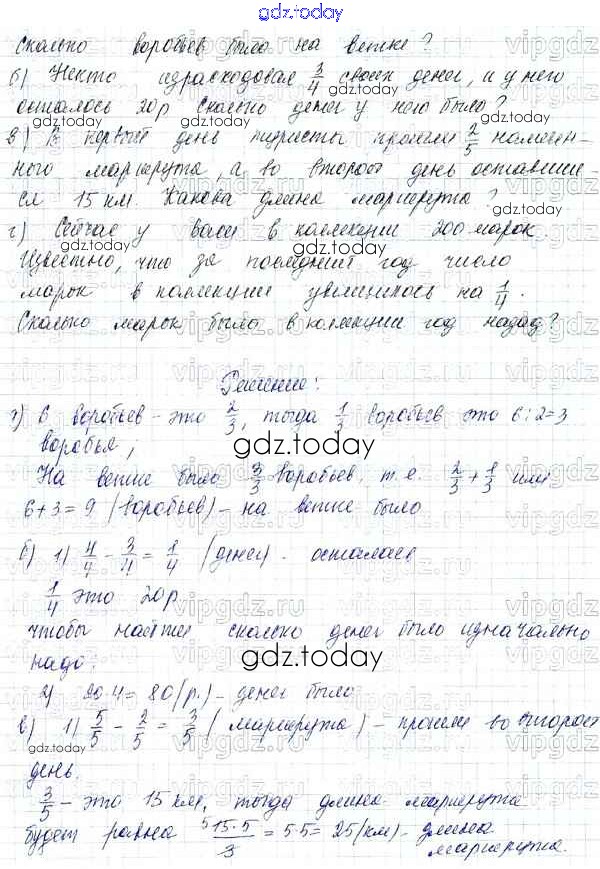 gdz.today
сколько воробьев было на ветке?
б) Некто израсходовал 3/4 своих денег, и у него
осталось 20р Сколько денег у него было?
в) В первый день туристы прошли 2/5 намечен-
ного маршрута, а во второй день оставшие-
ся 15 км. Какова длина маршрута?
г) Сейчас у Васи в коллекции 200 марок.
Известно, что за последний год число
марок в коллекции увеличилось на 1/4.
Сколько марок было в коллекции год назад?
Решение:
6 воробьев - это 2/3, тогда 1/3 воробьев это 6:2=3
воробья;
На ветке было 3/3 воробьев, т.е. 2/3 + 1/3 или
6+3=9 (воробьев) - на ветке было
б) 1) 4/4 - 3/4 = 1/4 (денег) - осталась
1/4 это 20р
чтобы найти сколько денег было изначально
надо:
2) 20·4=80(р.) - денег было
в) 1) 5/5 - 2/5 = 3/5 (маршрута) - прошли во второй
день.
3/5 - это 15 км, тогда длина маршрута
будет равна 5 15·5/3 = 5·5 = 25(км) - длина
маршрута.